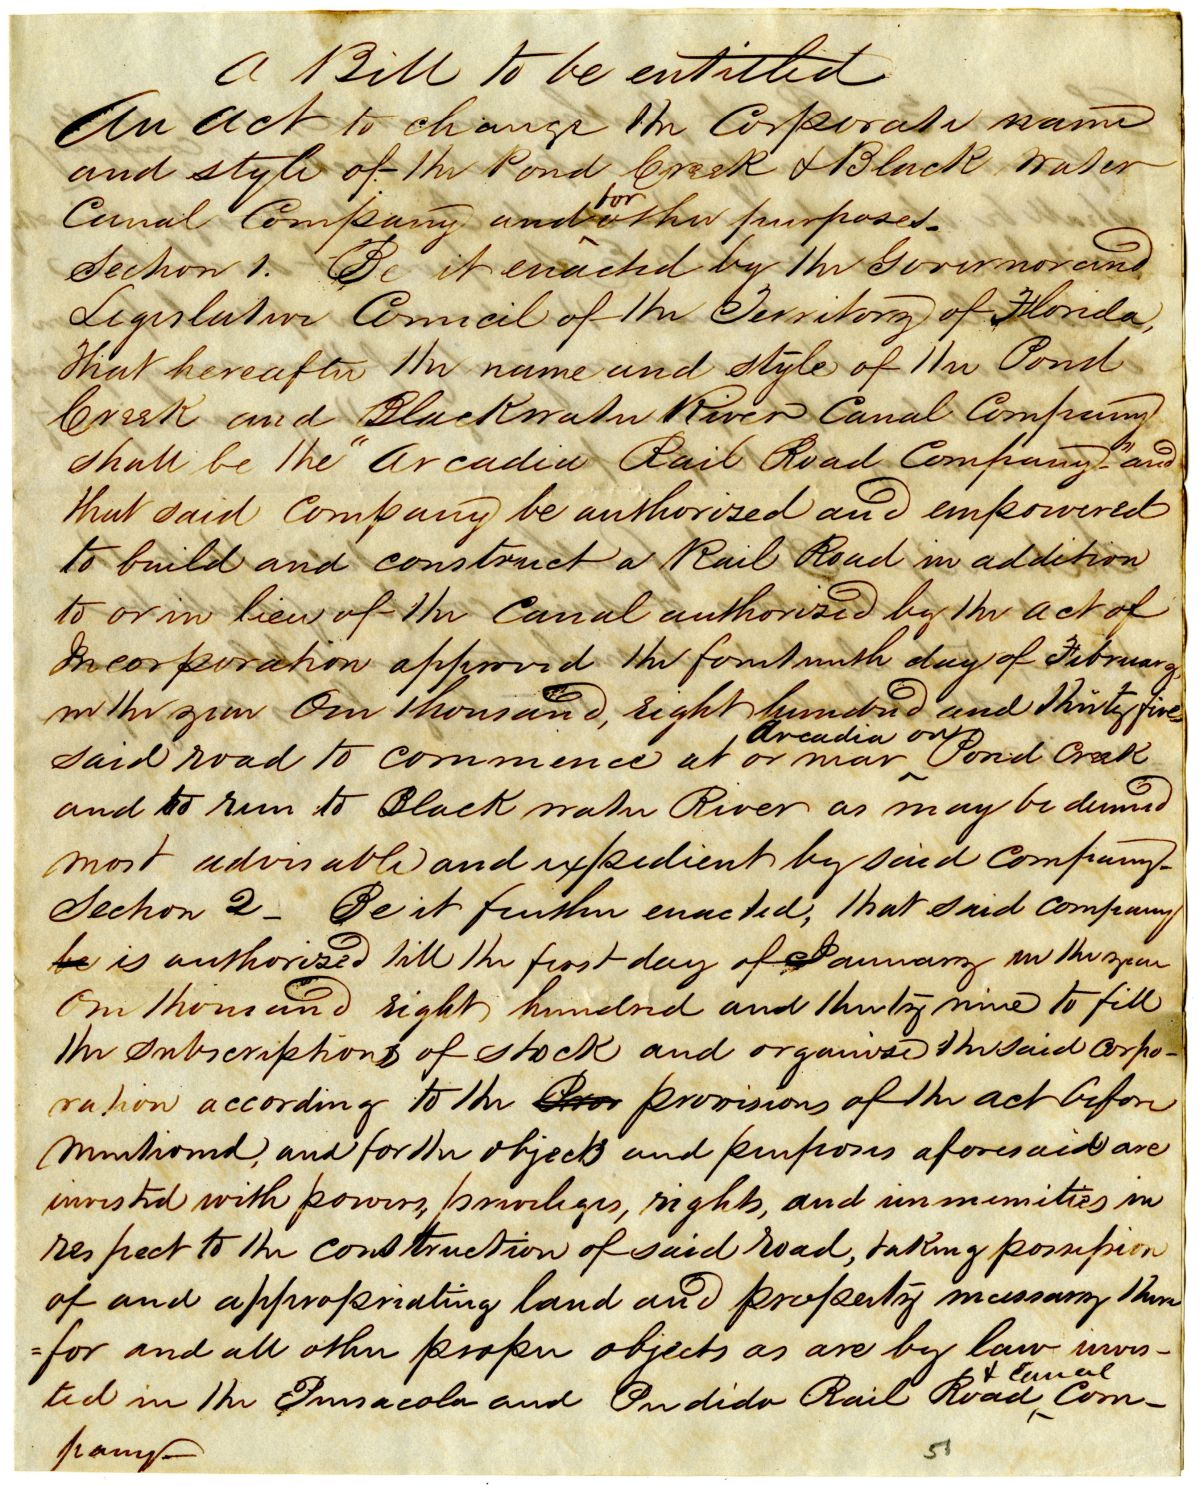 A Bill to be entitled
An Act to change the Corporate name
and style of the Pond Creek & Black Water
Canal Company and for other purposes.
Section 1. Be it enacted by the Governor and
Legislative Council of the Territory of Florida,
that hereafter the name and style of the Pond
Creek and Blackwater River Canal Company
shall be the "Arcadia Rail Road Company-" and
that said Company be authorized and empowered
to build and construct a Rail Road in addition
to or in lieu of the Canal authorized by the act of
Incorporation approved the fourteenth day of February,
in the year One thousand, eight hundred and thirty five
said road to commence at or near Arcadia on Pond Creek
and to run to Black water River as may be deemed
most advisable and expedient by said company-
Section 2- Be it further enacted, that said company
be is authorized till the first day of January in the year
One thousand eight hundred and thirty nine to fill
the subscriptions of stock and organise the said corpo-
ration according to the Pror provisions of the act before
mentioned, and for the objects and purposes aforesaid are
invested with powers, privileges, rights, and immunities in
respect to the construction of said road, taking possession
of and appropriating land and property necessary there
=for and all other proper objects as are by law inves-
ted in the Pensacola and Perdido Rail Road & Canal Com-
pany-
51